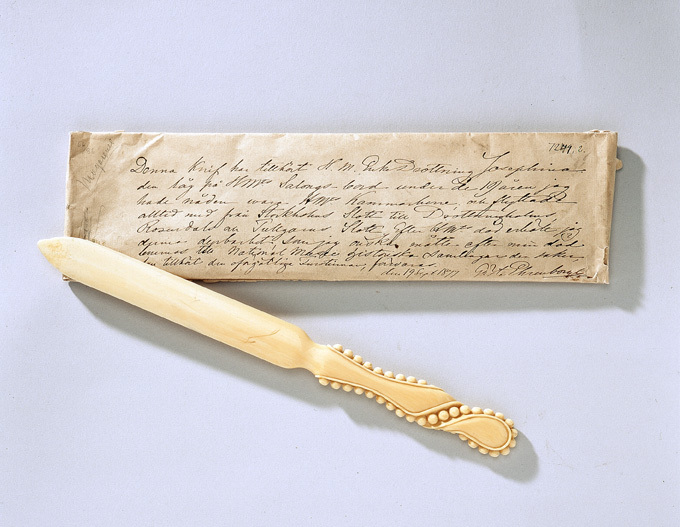 7249.2.
Denna Knif har tillhört H. M. Enke Drottning Josephina
den låg på H Mts Salongs-bord under de 19 åren jag
hade nåden vara H Mts Kammarherre, och flyttades
alltid med från Stockholms Slott till Drottningholms,
Rosendals och Tullgarns Slott. Efter H Mts död erhöll jag
denna dyrbarhet som jag önskar måtte efter min död
lemnas till National Musei Historiska Samlingar der saker
som tillhört den oförgätliga Furstinnan, förvaras.
den 19 Sept 1877